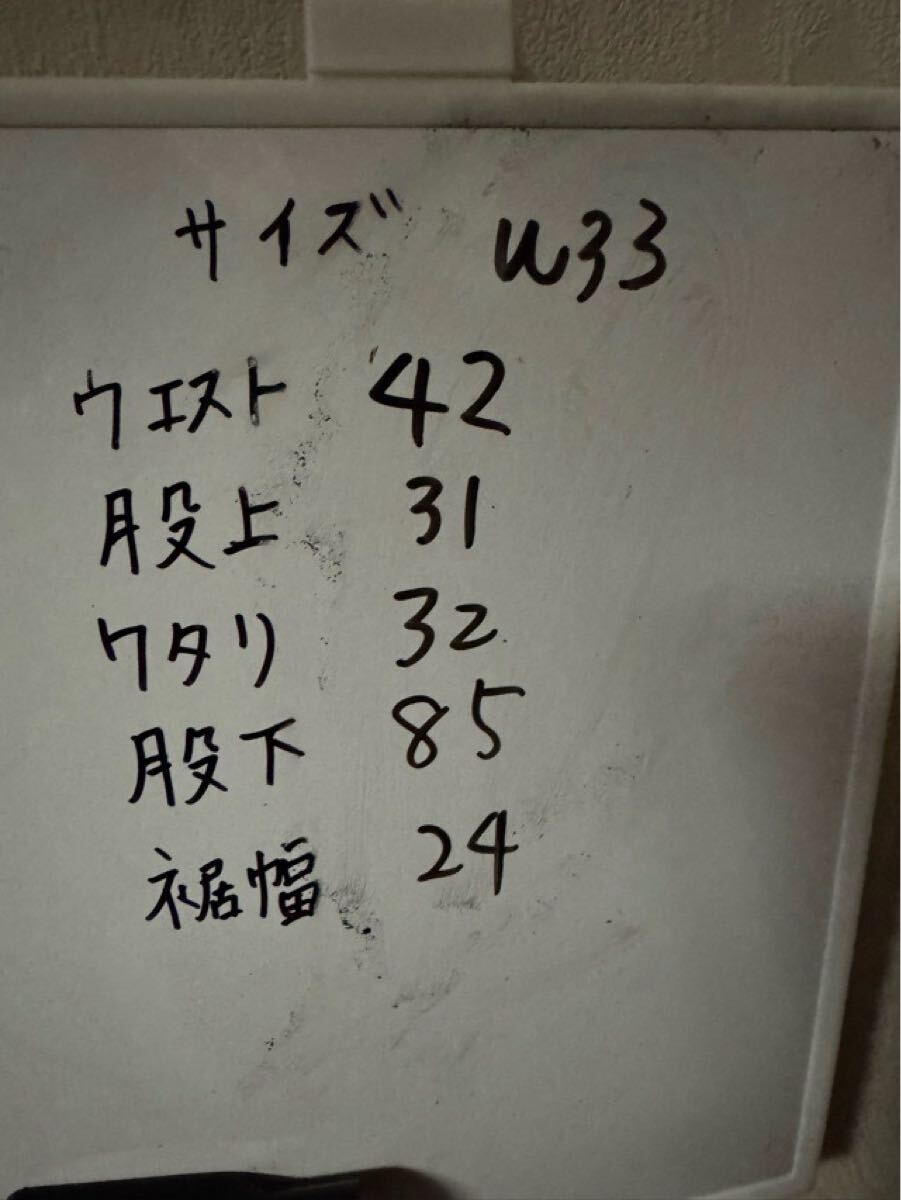 サイズ W33
ウエスト 42
股上 31
ワタリ 32
股下 85
裾幅 24